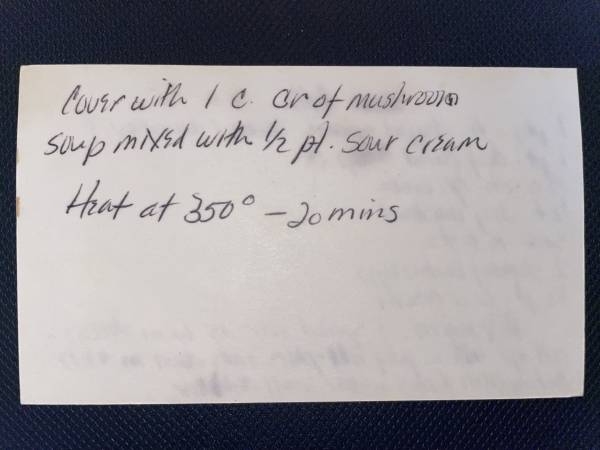 Cover with 1 c. cr of mushroom
soup mixed with 1/2 pt. sour cream
Heat at 350° - 20 mins